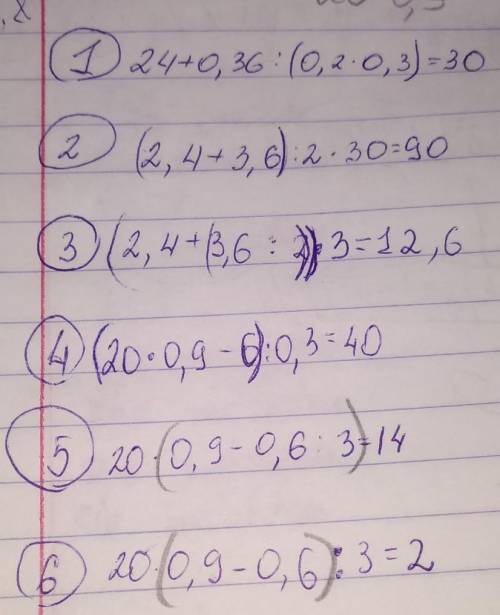 1 24+0,36:(0,2·0,3)=30
2 (2,4+3,6):2·30=90
3 (2,4+(3,6:2))·3=12,6
4 (20·0,9-6):0,3=40
5 20·(0,9-0,6:3)=14
6 20·(0,9-0,6):3=2